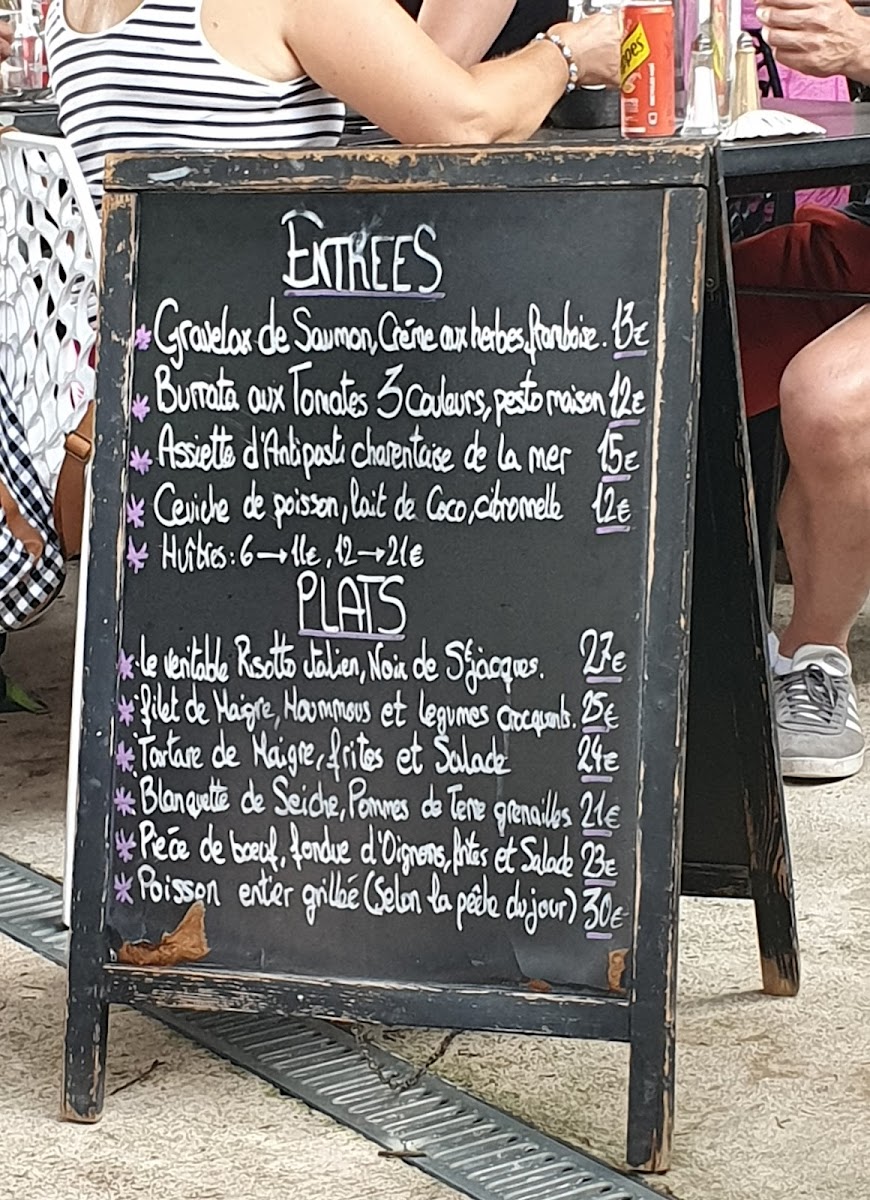 ppes
ENTREES
* Gravelax de Saumon, Crème aux herbes, framboise. 13€
* Burrata aux Tomates 3 Couleurs, pesto maison 12€
* Assiette d'Antipasti charentaise de la mer 15€
* Ceviche de poisson, lait de Coco, citronnelle 12€
* Huîtres : 6 → 11€, 12 → 21€
PLATS
* Le veritable Risotto italien, Noix de St jacques. 27€
* filet de Maigre, Hoummous et legumes croquants. 25€
* Tartare de Maigre, frites et Salade 24€
* Blanquette de Seiche, Pommes de Terre grenailles 21€
* Pièce de boeuf, fondue d'Oignons, frites et Salade 23€
* Poisson entier grillée (Selon la pêche du jour) 30€